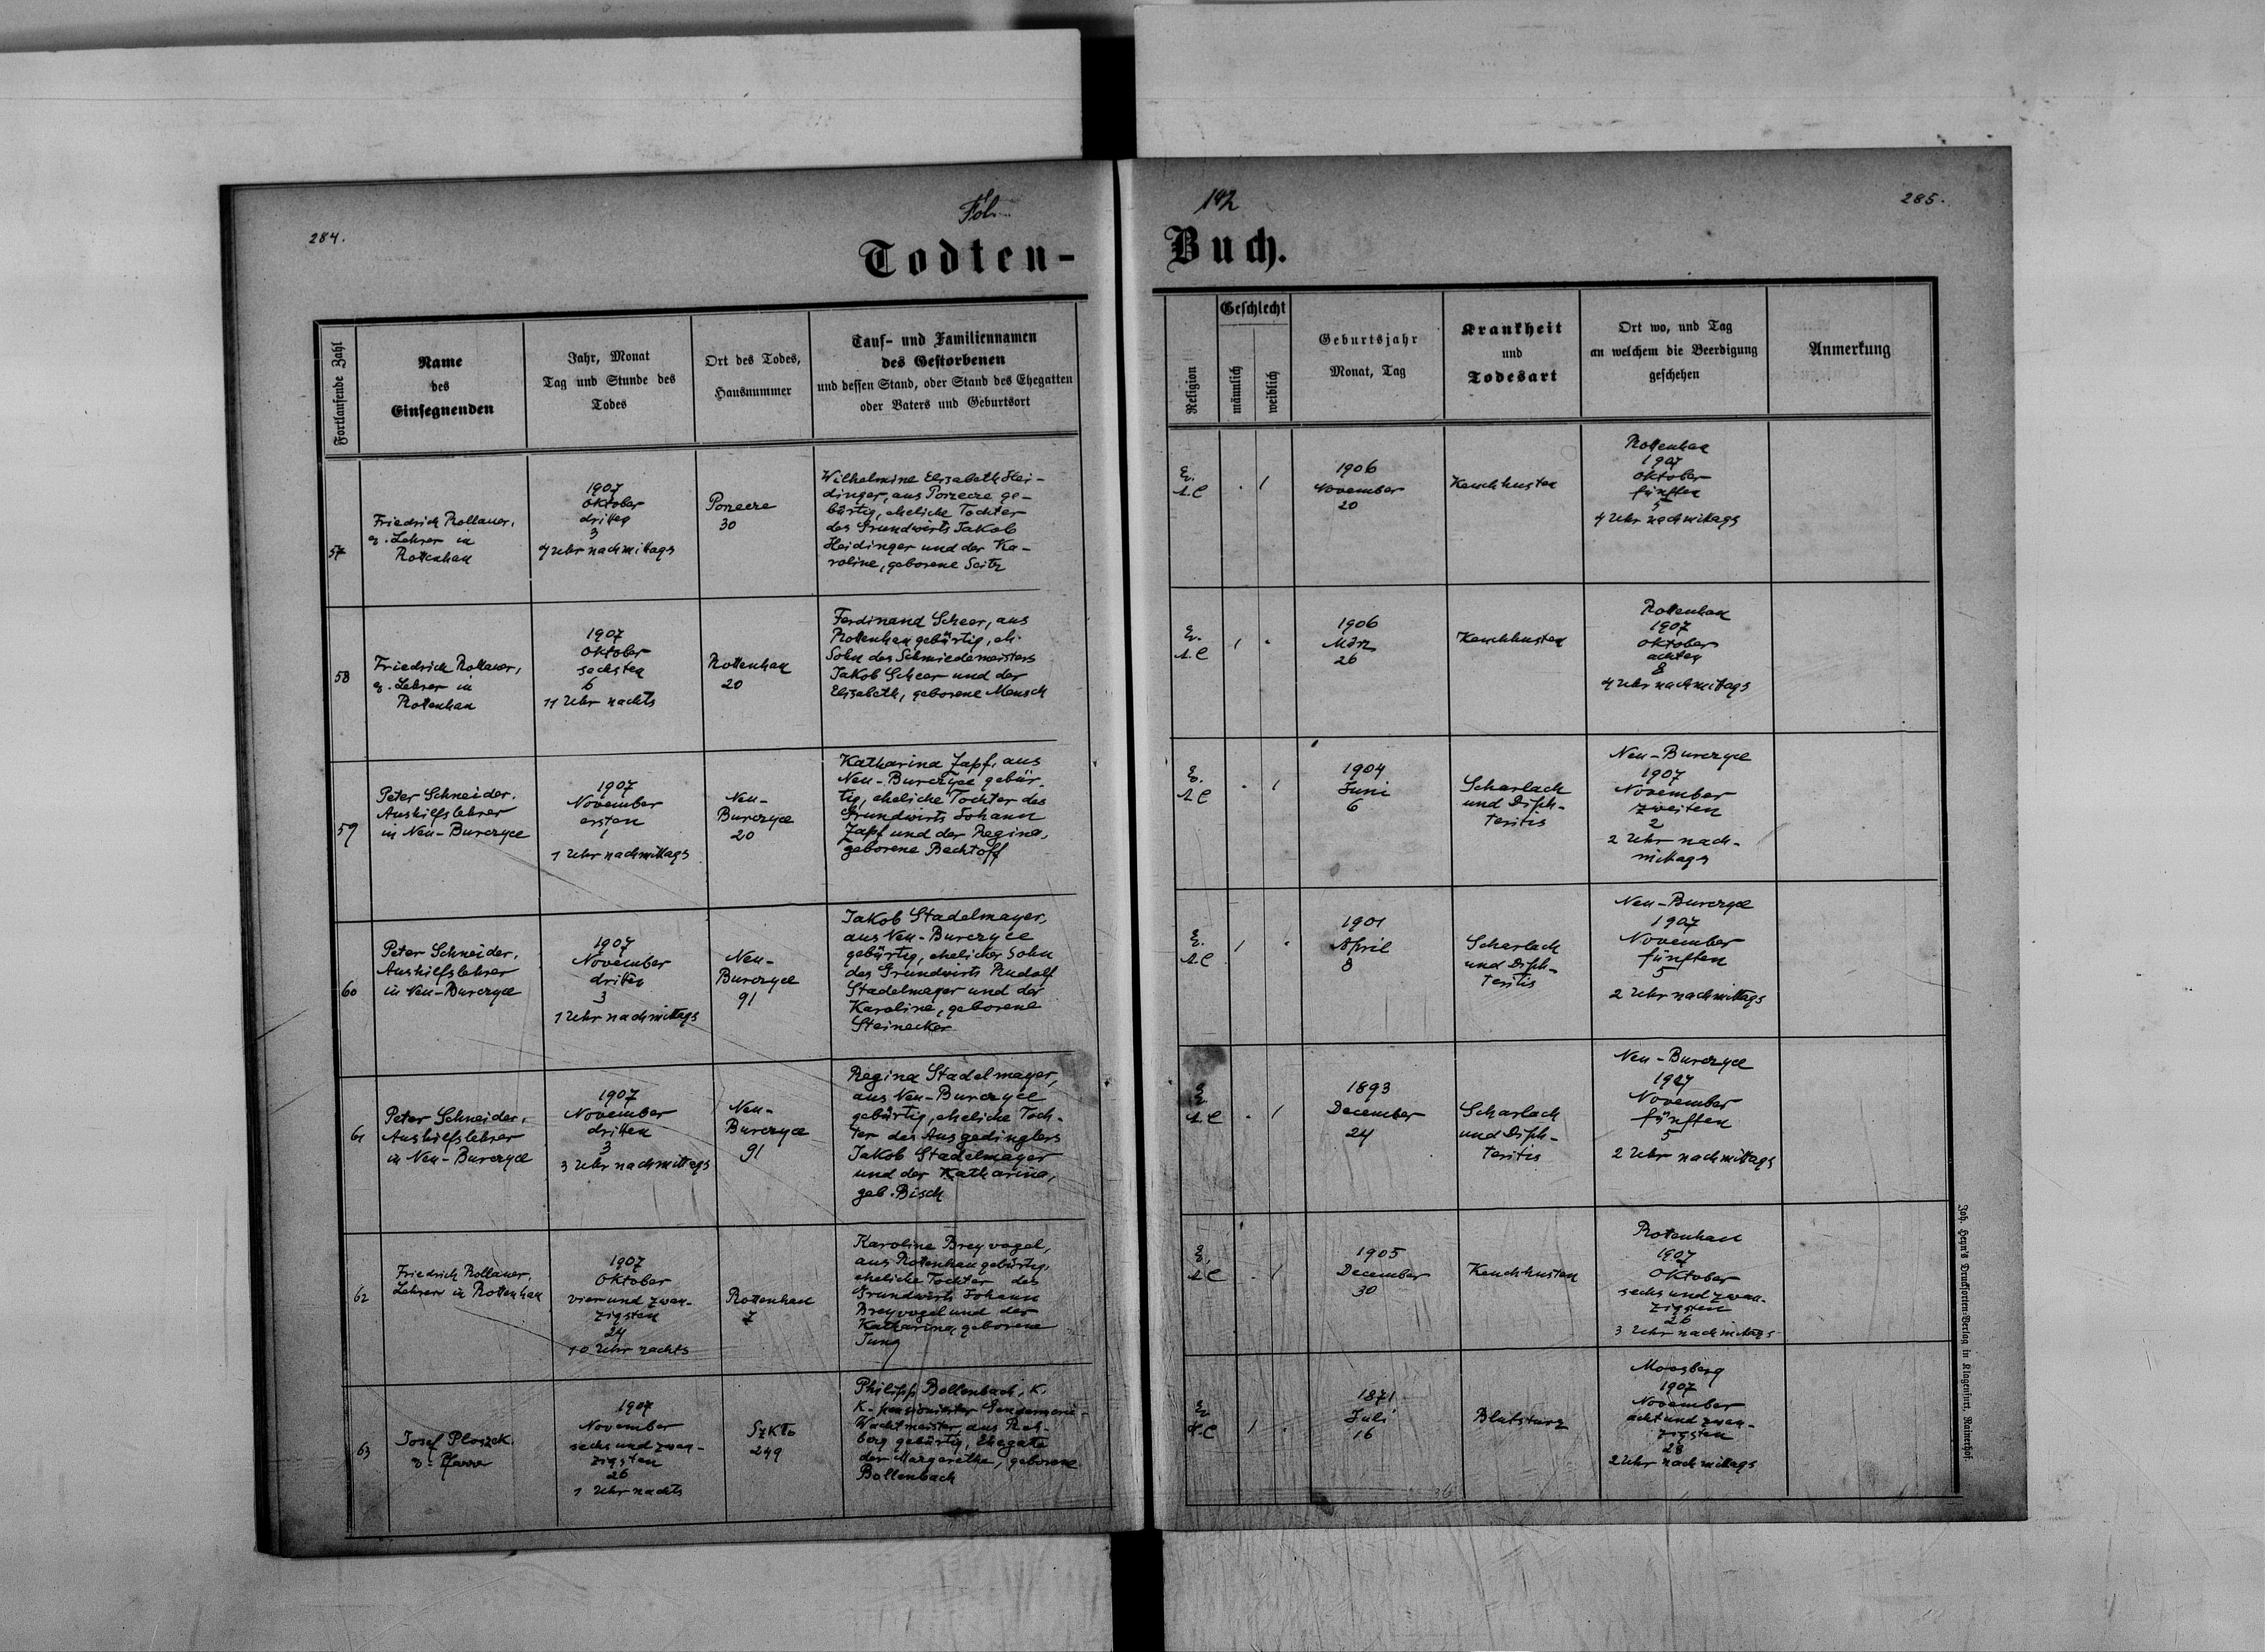 284.
Fol.
Todten-
Fortlaufende Zahl
Name
des
Einsegnenden
Jahr, Monat
Tag und Stunde des
Todes
Ort des Todes,
Hausnummer
Tauf- und Familiennamen
des Gestorbenen
und dessen Stand, oder Stand des Ehegatten
oder Vaters und Geburtsort
57
Friedrich Rollauer,
ev. Lehrer in
Rottenhan
1907
Oktober
dritten
3
4 Uhr nachmittags
Porzecze
30
Wilhelmine Elisabeth Hei-
dinger, aus Porzecze ge-
bürtig, eheliche Tochter
des Grundwirts Jakob
Heidinger und der Ka-
roline, geborene Seitz
58
Friedrich Rollauer,
ev. Lehrer in
Rottenhan
1907
Oktober
sechsten
6
11 Uhr nachts
Rottenhan
20
Ferdinand Scheer, aus
Rottenhan gebürtig, eh.
Sohn des Schmiedemeisters
Jakob Scheer und der
Elisabeth, geborene Mensch
59
Peter Schneider,
Aushilfslehrer
in Neu-Burczyce
1907
November
ersten
1
1 Uhr nachmittags
Neu-
Burczyce
20
Katharina Zapf, aus
Neu-Burczyce gebür-
tig, eheliche Tochter des
Grundwirts Johann
Zapf und der Regina,
geborene Bechtoff
60
Peter Schneider,
Aushilfslehrer
in Neu-Burczyce
1907
November
dritten
3
1 Uhr nachmittags
Neu-
Burczyce
91
Jakob Stadelmayer,
aus Neu-Burczyce
gebürtig, ehelicher Sohn
des Grundwirts Rudolf
Stadelmayer und der
Karoline, geborene
Steinecker
61
Peter Schneider,
Aushilfslehrer
in Neu-Burczyce
1907
November
dritten
3
3 Uhr nachmittags
Neu-
Burczyce
91
Regina Stadelmayer,
aus Neu-Burczyce
gebürtig, eheliche Toch-
ter des Ausgedinglers
Jakob Stadelmayer
und der Katharina,
geb. Bisch
62
Friedrich Rollauer,
Lehrer in Rottenhan
1907
Oktober
vier und zwan-
zigsten
24
10 Uhr nachts
Rottenhan
7
Karoline Breyvogel,
aus Rottenhan gebürtig,
eheliche Tochter des
Grundwirts Johann
Breyvogel und der
Katharina geborene
Jung
63
Josef Ploszek,
ev. Pfarrer
1907
November
sechs und zwan-
zigsten
26
1 Uhr nachts
249
Philipp Bollenbach, K.
K. pensionierter Gendarmerie-
Wachtmeister, aus
berg gebürtig, Ehegatte
der Margarethe, geborene
Bollenbach
142
285.
Buch.
Religion
Geschlecht
männlich
weiblich
Geburtsjahr
Monat, Tag
Krankheit
und
Todesart
Ort wo, und Tag
an welchem die Beerdigung
geschehen
Anmerkung
Ev.
A.C
1
1906
November
20
Keuchhusten
Rottenhan
1907
Oktober
fünften
5
4 Uhr nachmittags
Ev.
A.C
1
1906
März
26
Keuchhusten
Rottenhan
1907
Oktober
achten
8
4 Uhr nachmittags
Ev.
A.C
1
1904
Juni
6
Scharlach
und Diph-
teritis
Neu-Burczyce
1907
November
zweiten
2
2 Uhr nach-
mittags
Ev.
A.C
1
1901
April
8
Scharlach
und Diph-
teritis
Neu-Burczyce
1907
November
fünften
5
2 Uhr nachmittags
Ev.
A.C
1
1893
December
24
Scharlach
und Diph-
teritis
Neu-Burczyce
1907
November
fünften
5
2 Uhr nachmittags
Ev.
A.C
1
1905
December
30
Keuchhusten
Rottenhan
1907
Oktober
sechs und zwan-
zigsten
26
3 Uhr nachmittags
Ev.
1
1871
Juli
16
Blutsturz
Moosberg
1907
November
acht und zwan-
zigsten
28
2 Uhr nachmittags
Joh. Heyn's Drucksorten-Verlag in Klagenfurt, Rainerhof.